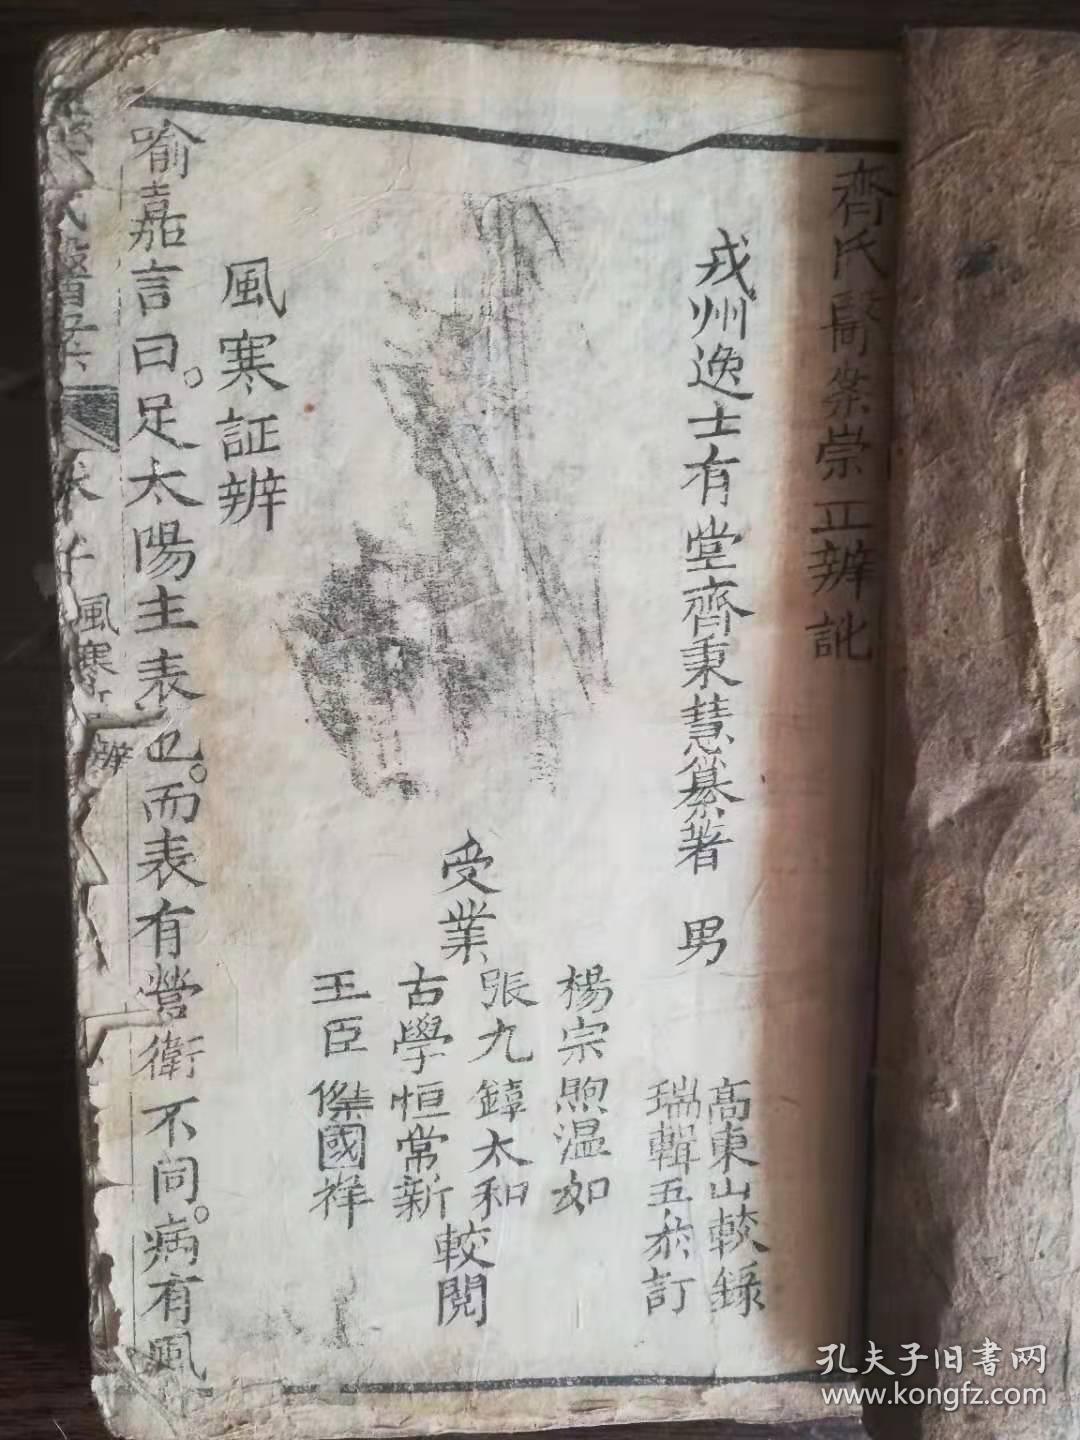 齊氏醫案崇正辨訛
戎州逸士有堂齊秉慧纂著 男
高東山較錄
瑞輯五叅訂
受業
楊宗煦温如
張九鐔太和
古學恒常新
王臣傑國祥
較閱
風寒証辨
喻嘉言曰。足太陽主表也。而表有營衛不同。病有風
氏醫案
風寒 辨
孔夫子旧書网
www.kongfz.com